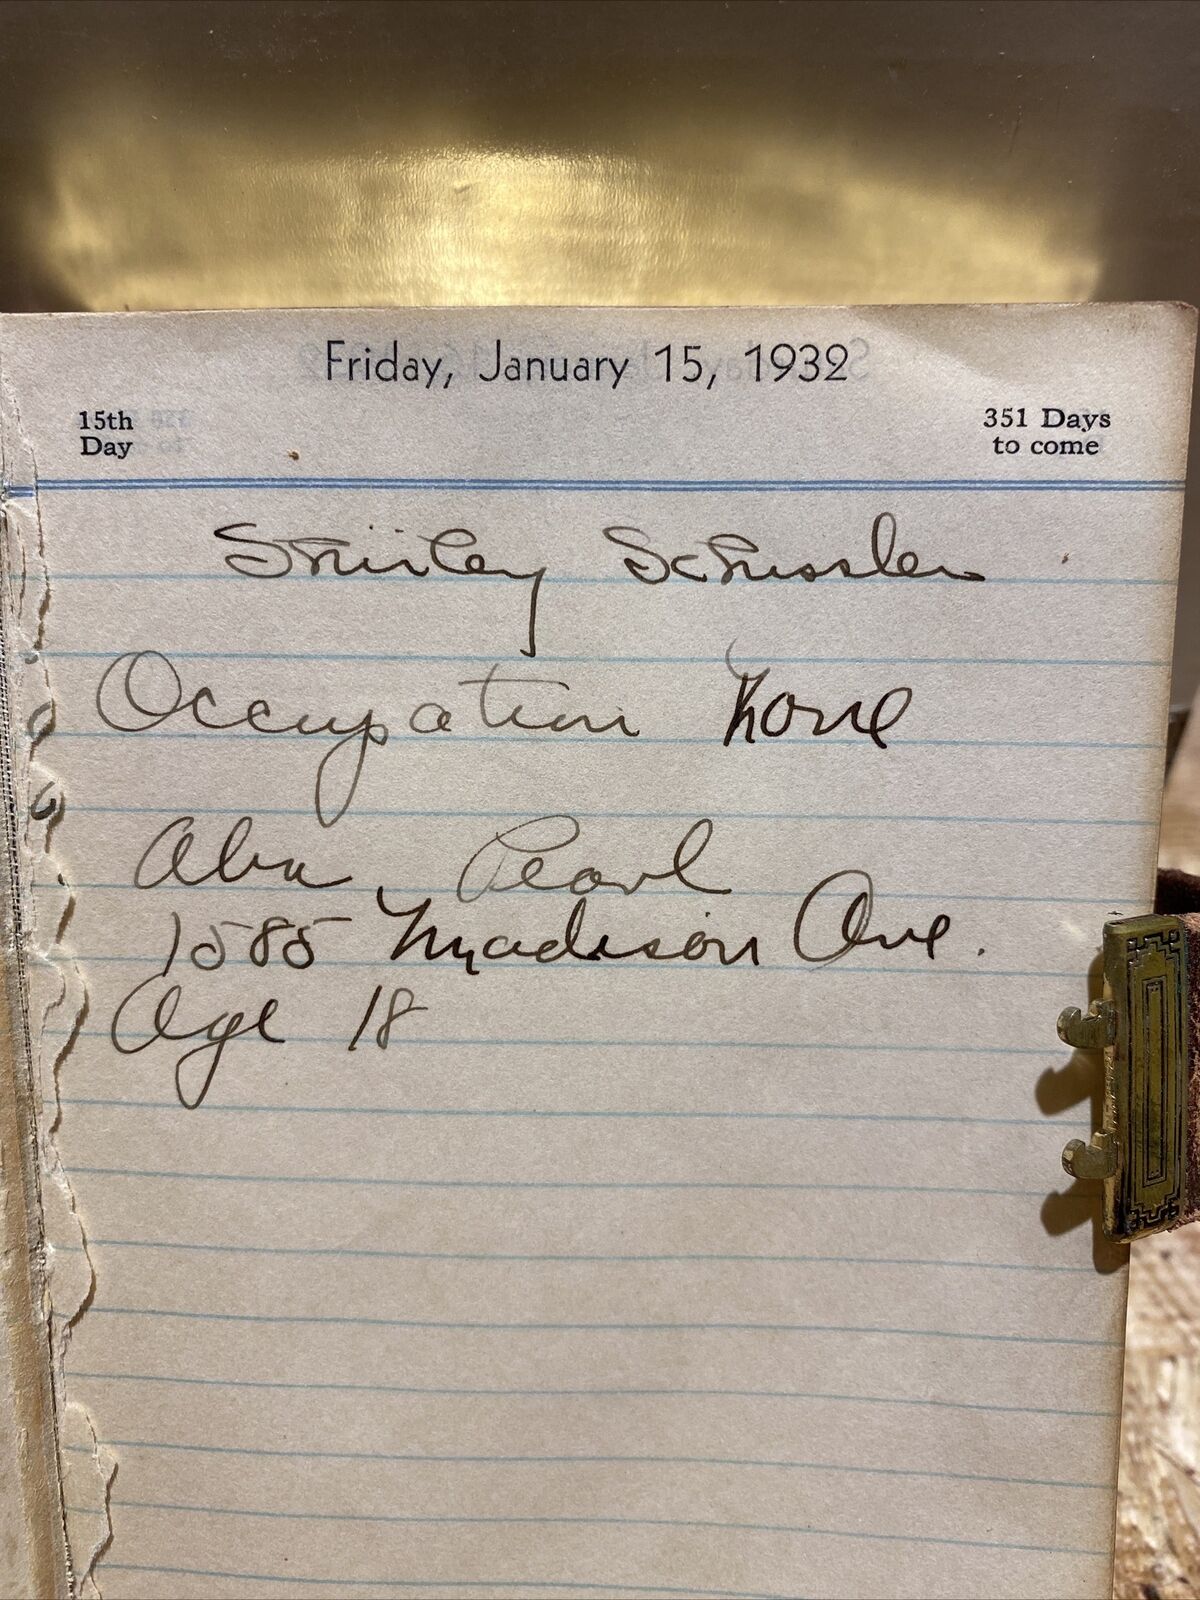 Friday, January 15, 1932
15th
Day
351 Days
to come
Shirley Schussler
Occupation None
Abu. Pearl
1585 Madison Ave.
Age 18